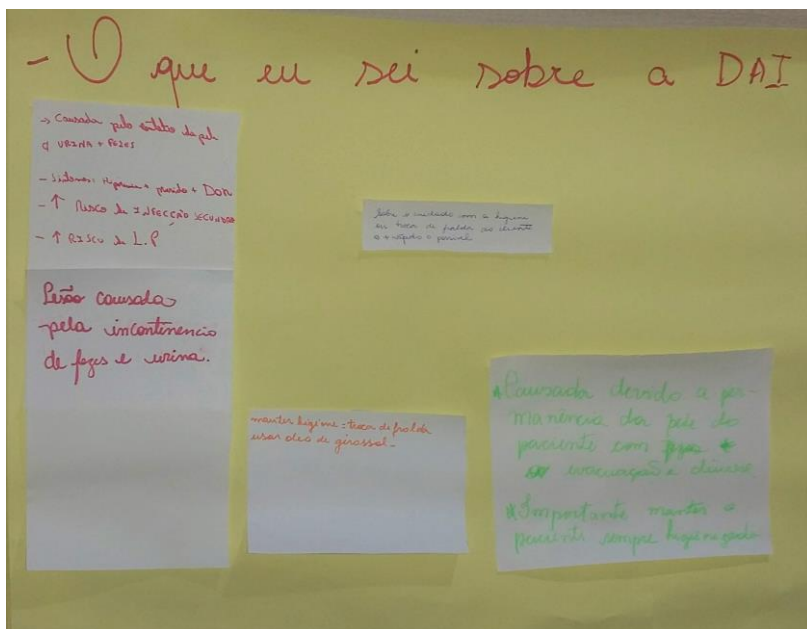 - O que eu sei sobre a DAI
→ Causada pelo contato da pele
c/ URINA + FEZES
- Sintomas: Hiperemia + prurido + Dor
- ↑ Risco de INFECÇÃO SECUNDÁRIA
- ↑ RISCO de L.P
Lesão causada
pela incontinencia
de fezes e urina.
Sobre o cuidado com a higiene
na troca de fralda do cliente
o + rápido possível
manter higiene = troca de fralda
usar oleo de girassol -
*Causada devido a per-
manência da pele do
paciente com
evacuação e diurese
*Importante manter o
paciente sempre higienizado